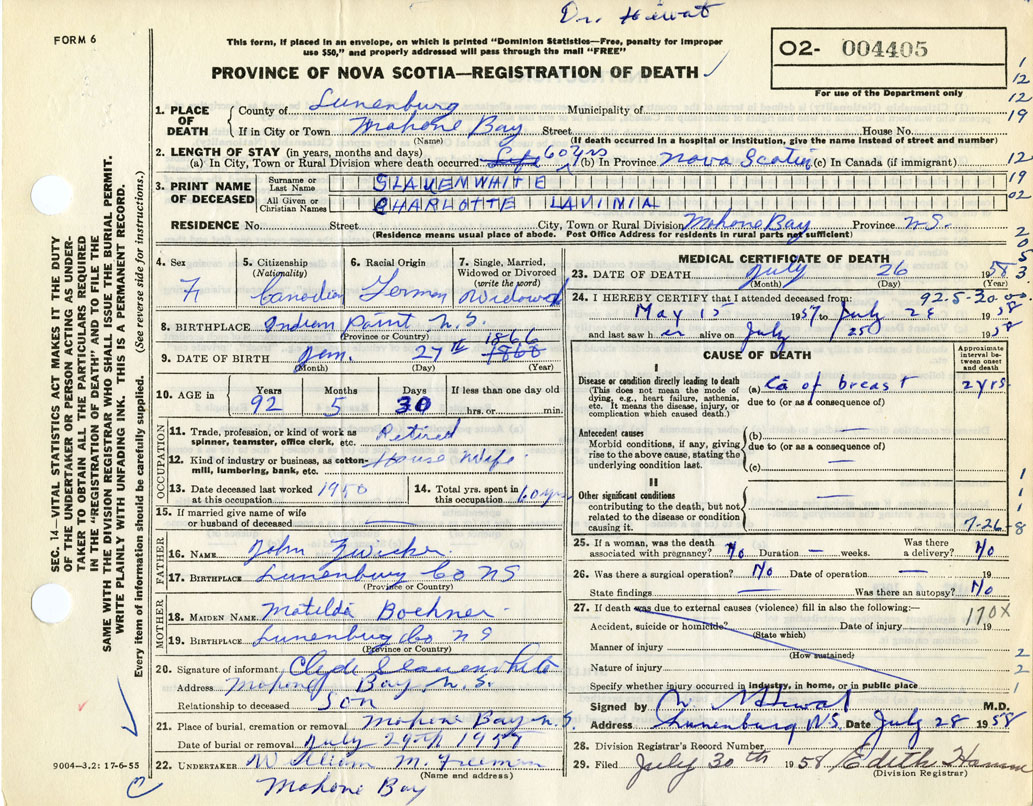 Dr. Hewat
FORM 6
This form, if placed in an envelope, on which is printed "Dominion Statistics—Free, penalty for improper
use $50," and properly addressed will pass through the mail "FREE"
PROVINCE OF NOVA SCOTIA—REGISTRATION OF DEATH
O2- 004405
For use of the Department only
1. PLACE OF DEATH
County of Lunenburg Municipality of
If in City or Town Mahone Bay Street House No.
(Name) (If death occurred in a hospital or institution, give the name instead of street and number)
2. LENGTH OF STAY (in years, months and days)
(a) In City, Town or Rural Division where death occurred Life 60 yrs (b) In Province Nova Scotia (c) In Canada (if immigrant)
3. PRINT NAME OF DECEASED
Surname or Last Name SLAUENWHITE
All Given or Christian Names CHARLOTTE LAVINIA
RESIDENCE No. Street City, Town or Rural Division Mahone Bay Province N.S.
(Residence means usual place of abode. Post Office Address for residents in rural parts not sufficient)
4. Sex F
5. Citizenship (Nationality) Canadian
6. Racial Origin German
7. Single, Married, Widowed or Divorced (write the word) Widowed
8. BIRTHPLACE Indian Point N.S.
(Province or Country)
9. DATE OF BIRTH Jan. 27th 1866 1866
(Month) (Day) (Year)
10. AGE in Years 92 Months 5 Days 30 If less than one day old hrs. or min.
OCCUPATION
11. Trade, profession, or kind of work as spinner, teamster, office clerk, etc. Retired
12. Kind of industry or business, as cotton-mill, lumbering, bank, etc. House Wife
13. Date deceased last worked at this occupation 1950
14. Total yrs. spent in this occupation 60 yrs
15. If married give name of wife or husband of deceased —
FATHER
16. NAME John Zwicker
17. BIRTHPLACE Lunenburg Co NS
(Province or Country)
MOTHER
18. MAIDEN NAME Matilda Bochner
19. BIRTHPLACE Lunenburg Co NS
(Province or Country)
20. Signature of informant Clyde Slauenwhite
Address Mahone Bay N.S.
Relationship to deceased Son
21. Place of burial, cremation or removal Mahone Bay N.S.
Date of burial or removal July 29th 1958
22. UNDERTAKER William M. Freeman
(Name and address)
Mahone Bay
9004—3.2: 17-6-55
SEC. 14—VITAL STATISTICS ACT MAKES IT THE DUTY
OF THE UNDERTAKER OR PERSON ACTING AS UNDER-
TAKER TO OBTAIN ALL THE PARTICULARS REQUIRED
IN THE "REGISTRATION OF DEATH" AND TO FILE THE
SAME WITH THE DIVISION REGISTRAR WHO SHALL ISSUE THE BURIAL PERMIT.
WRITE PLAINLY WITH UNFADING INK. THIS IS A PERMANENT RECORD.
Every item of information should be carefully supplied. (See reverse side for instructions.)
MEDICAL CERTIFICATE OF DEATH
23. DATE OF DEATH July 26 1958
(Month) (Day) (Year)
92-5-30
24. I HEREBY CERTIFY that I attended deceased from:
May 15 1957 to July 26 1958
and last saw her alive on July 25 1958
CAUSE OF DEATH
Approximate interval between onset and death
I
Disease or condition directly leading to death (a) Ca of breast 2 yrs.
(This does not mean the mode of dying, e.g., heart failure, asthenia, etc. It means the disease, injury, or complication which caused death.)
due to (or as a consequence of)
Antecedent causes (b) —
Morbid conditions, if any, giving rise to the above cause, stating the underlying condition last.
due to (or as a consequence of)
(c) —
II
Other significant conditions —
contributing to the death, but not related to the disease or condition causing it. —
7-26-8
25. If a woman, was the death associated with pregnancy? No Duration — weeks. Was there a delivery? No
26. Was there a surgical operation? No Date of operation — 19
State findings — Was there an autopsy? No
27. If death was due to external causes (violence) fill in also the following:—
170X
Accident, suicide or homicide? Date of injury 19
(State which)
Manner of injury
(How sustained)
Nature of injury
Specify whether injury occurred in industry, in home, or in public place
Signed by W Hewat M.D.
Address Lunenburg N.S. Date July 28 1958
28. Division Registrar's Record Number
29. Filed July 30th 1958 Edith Hamm
(Division Registrar)
1
12
12
19
12
19
02
2
0
5
3
1
1
1
8
2
2
1